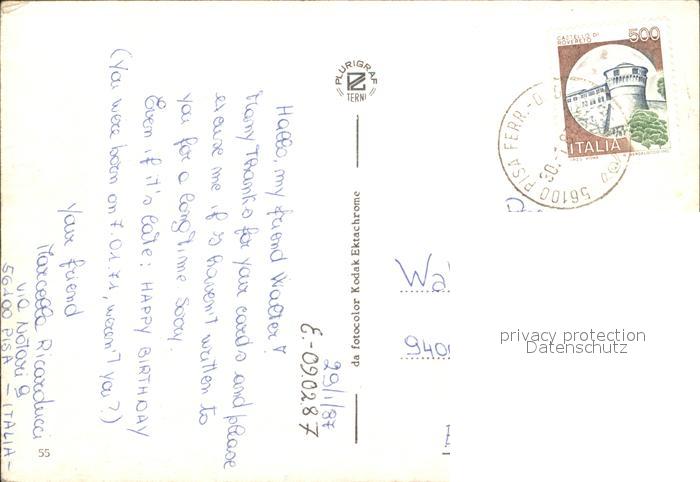 29/1/87
E-090287
Hallo, my friend Walter!
Many thanks for your cards and please
excuse me if I haven't written to
you for a long time. Sorry.
Even if it's late: HAPPY BIRTHDAY
(You were born on 7.01.71, weren't you?)
Your friend
Marcella Ricarducci
via Notari 9
56100 PISA - ITALIA-
55
PLURIGRAF
TERNI
da fotocolor Kodak Ektachrome
CASTELLO DI
ROVERETO
500
ITALIA
56100 PISA FERR.
Wal
940
privacy protection
Datenschutz